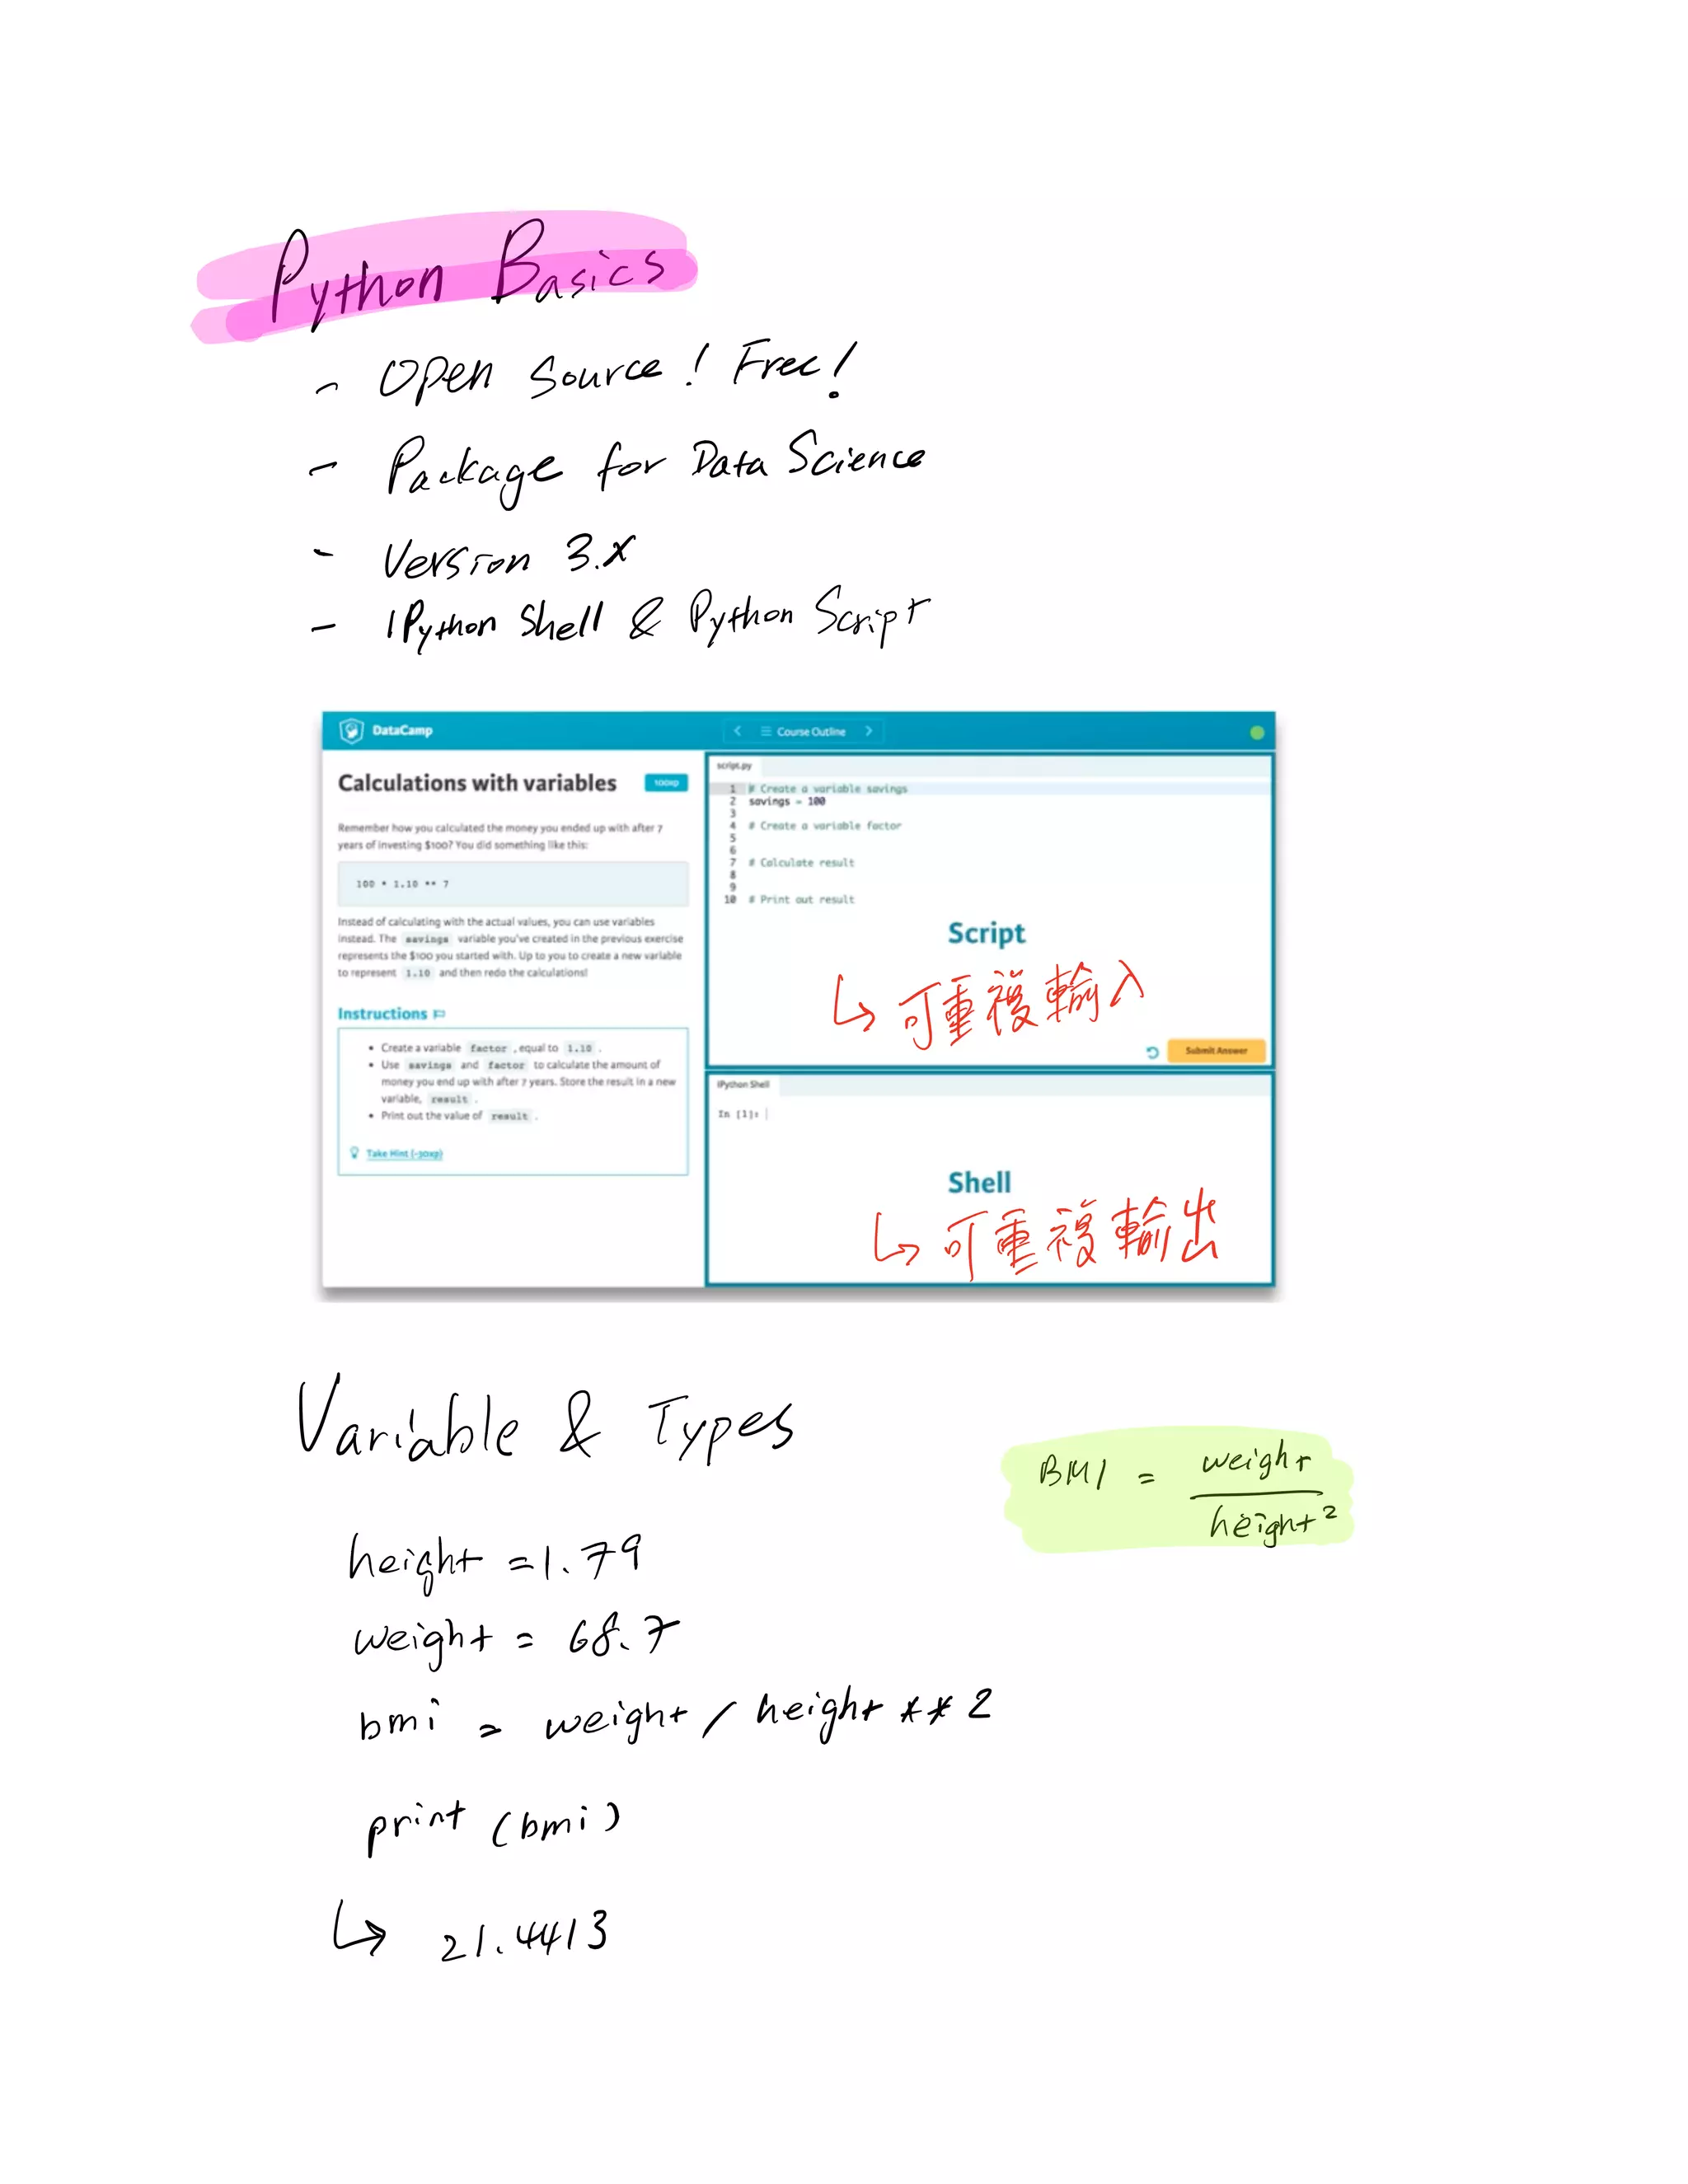 Python Basics
- Open Source! Free!
- Package for Data Science
- Version 3.x
- IPython Shell & Python Script
DataCamp
Course Outline
Calculations with variables
100xp
Remember how you calculated the money you ended up with after 7
years of investing $100? You did something like this:
100 * 1.10 ** 7
Instead of calculating with the actual values, you can use variables
instead. The savings variable you've created in the previous exercise
represents the $100 you started with. Up to you to create a new variable
to represent 1.10 and then redo the calculations!
Instructions
• Create a variable factor, equal to 1.10.
• Use savings and factor to calculate the amount of
money you end up with after 7 years. Store the result in a new
variable, result.
• Print out the value of result.
Take Hint (-30xp)
script.py
1 # Create a variable savings
2 savings = 100
3
4 # Create a variable factor
5
6
7 # Calculate result
8
9
10 # Print out result
Script
↳ 可重複輸入
Submit Answer
IPython Shell
In [1]:
Shell
↳ 可重複輸出
Variable & Types
BMI = weight
height²
height = 1.79
weight = 68.7
bmi = weight / height ** 2
print (bmi)
↳ 21.4413